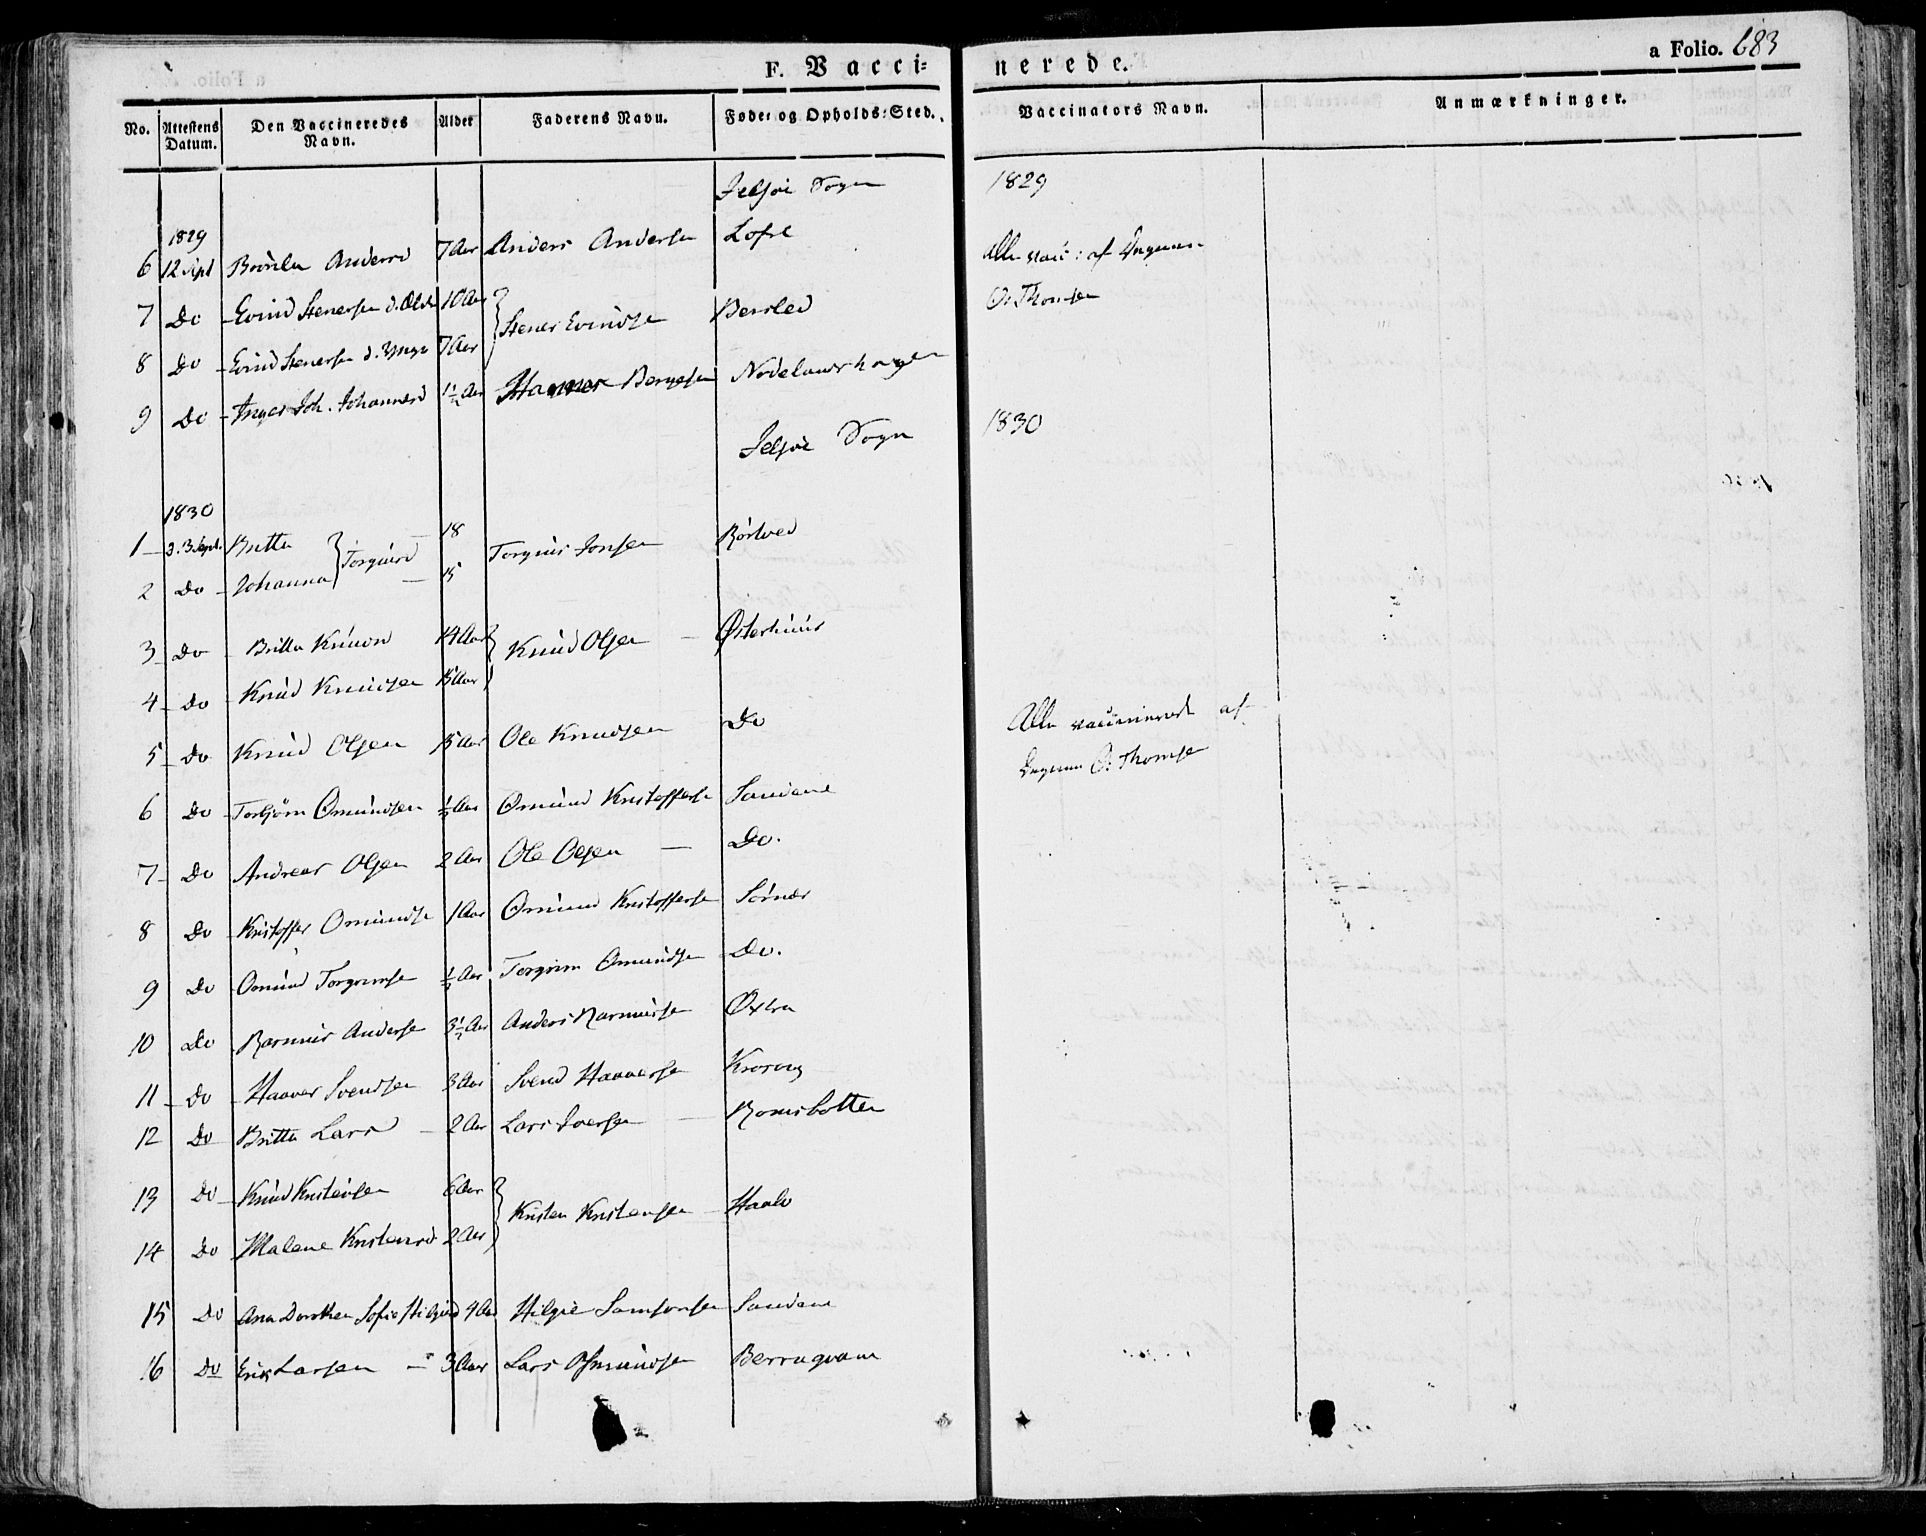 F. Vacci= nerede. a Folio. 683
No. Attestens Datum. Den Vaccineredes Navn. Alder Faderens Navn. Føde= og Opholds=Sted. Vaccinators Navn. Anmærkninger.
Jelsøe Sogn 1829
1829
6 12 Sept Anders Andersen Lofte 7 Aar Alle vacc: af
7 Do Evind Stenersen d. Ælde 10 Aar Stener Evindsen O. Thomsen
8 Do Evind Stenersen d. Yngr 7 Aar
9 Do Inger Joh. Johannesd 1½ Aar Bergesen
Jelsøe Sogn 1830
1830
1 d. 3 Sept. Britta Torgiursd 18 Torgiuis Jonsen
2 Do Johanna 15
3 Do Britta Knudsd 14 Aar Knud Olsen Østerhuus
4 Do Knud Knudsen 15 Aar
5 Do Knud Olsen 15 Aar Ole Knudsen Do Alle vaccinerede af
O. Thomse
6 Do Torbjørn Omundsen ½ Aar Omund Kristofferse Sandene
7 Do Andreas Olsen 2 Aar Ole Olsen Do.
8 Do Kristoffer Omundse 1 Aar Omund Kristofferse Sørnes
9 Do Omund Torgrimse ½ Aar Torgrim Omundse Do.
10 Do Rasmus Anderse 3½ Aar Anders Rasmusse Øxtra
11 Do Haaver Svendsen 3 Aar Svend Haaverse Krossvig
12 Do Britta Larsd 2 Aar Lars Iversen Romsbotten
13 Do Knud Kristensen 6 Aar Kristen Kristensen
14 Do Malene Kristensd 2 Aar
15 Do Ana Dorothea Sofie Hilgiesd 4 Aar Hilgie Samsonsen Sandene
16 Do Erik Larsen 3 Aar Lars Osmundsen Berraqvam